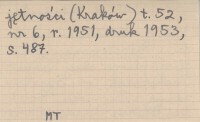 jętności (Kraków) t. 52,
nr 6, r. 1951, druk 1953,
s. 487.
MT